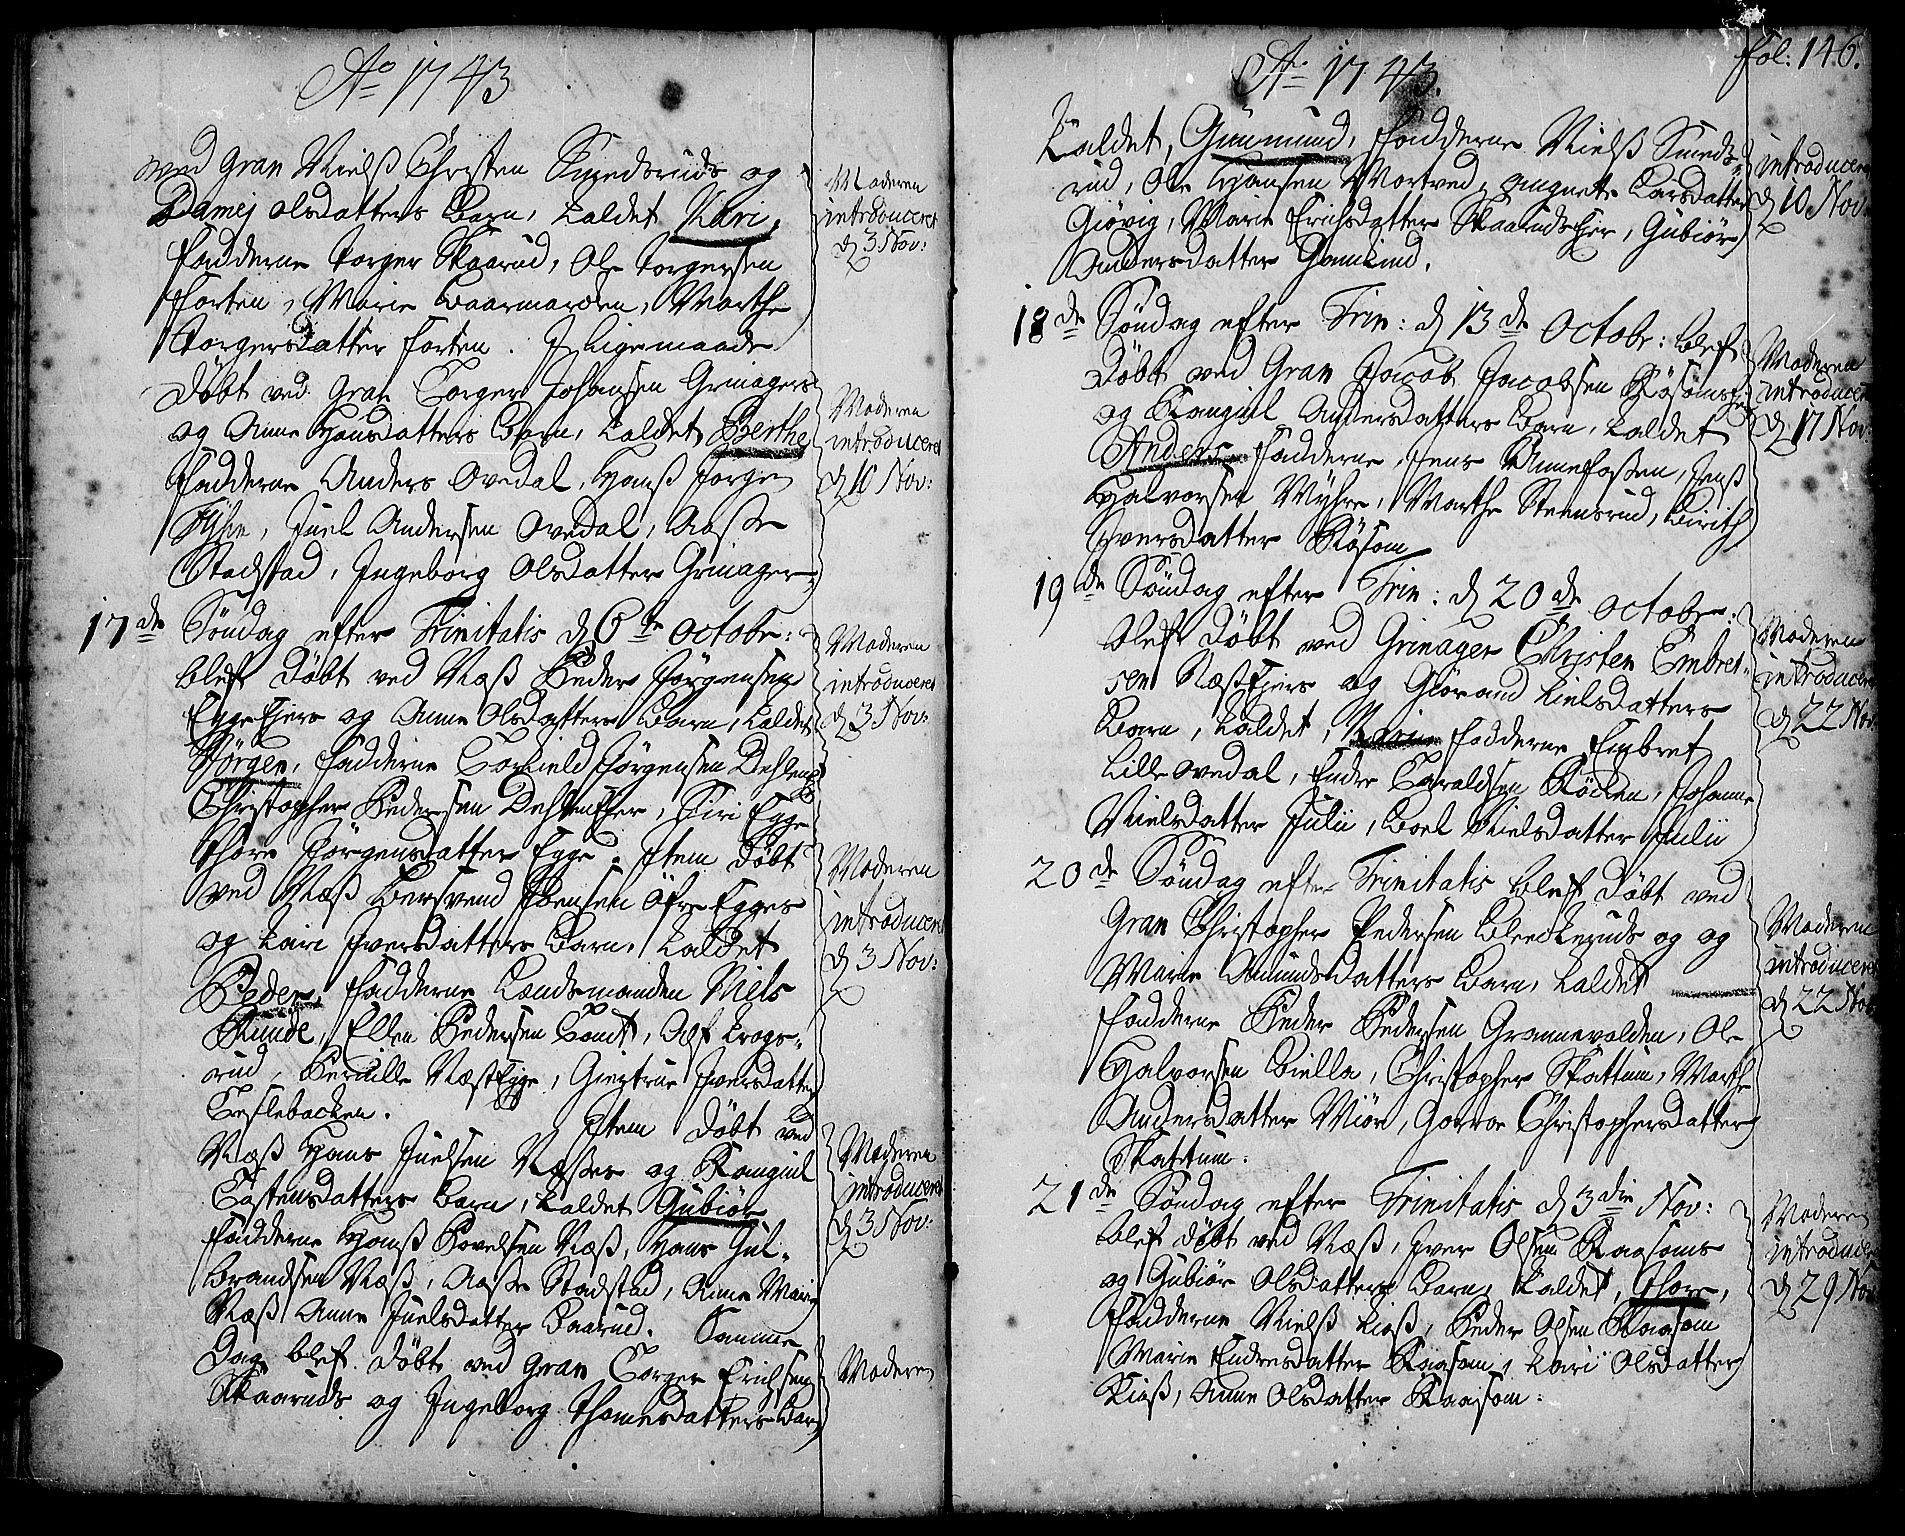 Ao 1743
ved Gran Nielß Christen Smedsruds og
olsdatters Barn, kaldet Kari,
Fadderne Torger Skaarud, Ole Torgersen
Horten, Marie Baarmarken, Marthe
Torgersdatter Horten. I ligemaade
Døbt ved Gran Torger Johansen Grinagers
og Anne Hansdatters Barn, kaldet Berthe
Fadderne Anders Ovedal, Hanß
Juel Andersen Ovedal, Aaße
Stadstad, Ingeborg Olsdatter Grinager
17de Søndag efter Trinitatis d 6te Octobr:
blef Døbt ved Næß Peder Jörgensen
Egge Eiers og Anne Olsdatters Barn, kaldet
Jörgen, Fadderne Torkield Jörgensen
Christopher Pedersen, Siri Egge
Thore Jörgensdatter Egge. Item Døbt
ved Næß Bersvend Ibensen Öfre Egges
og Kari Iversdatters Barn, kaldet
Peder, Fadderne Landsmanden Niels
Runde, Ellen Pedersen, Olf Krogs-
rud, Pernille NæstEgge, Giertrue Iversdatter
Teslebacken.
Item Døbt ved
Næß Hans Juelsen Næßes og Rangnil
Tostensdatters Barn, kaldet Gubiör
Fadderne Hanß Povelsen Næß, Hans Gul-
brandsen Næß, Aaße Stadstad, Anne Marie
Næß Anne Juelsdatter Baarud. Samme
Dag blef Døbt ved Gran Torger Erichsen
Skaaruds og Ingeborg Thomesdatters Barn
Moderen
introduceret
d 3 Nov:
Moderen
introduceret
d 10 Nov:
Moderen
introduceret
d 3 Nov:
Moderen
introduceret
d 3 Nov:
Moderen
introduceret
d 3 Nov:
Moderen
Ao 1743.
Fol: 146.
kaldet, Gunmund, Fadderne Nielß Smeds-
rud, Ole Hansen Mortved, Angnete Larsdatter
Giövig, Marie Erichsdatter Skaaruds Eier, Gubiör
Andersdatter Gamlund.
18de Søndag efter Trin: d 13de Octobr: blef
Døbt ved Gran Jacob Jacobsen Röisoms
og Rangnil Andersdatters Barn, kaldet
Anders, Fadderne, Jens Annefoßen, Jenß
Halvorsen Myhre, Marthe Steensrud, Birith
Iversdatter Röisom
19de Søndag efter Trin: d 20de Octobr:
blef Døbt ved Grinager Christen Embret-
sen NæßEiers og Giörand Nielsdatters
Barn, kaldet, Marie Fadderne Embret
Lille Ovedal, Endre Taraldsen Röcken, Johanne
Nielsdatter Julii, Boel Nielsdatter Julii
20de Søndag efter Trinitatis blef Døbt ved
Gran Christopher Pedersen Bleckeruds og og
Marie Amundsdatters Barn, kaldet
Fadderne Peder Pedersen Grannevolden, Ole
Halvorsen Biella, Christopher Skattum, Marthe
Andersdatter Miör, Gorroe Christophersdatter
Skattum.
21de Søndag efter Trinitatis d 3die Nov:
blef døbt ved Næß, Iver Olsen Raasoms
og Gubiör Olsdatters Barn, kaldet, Thore,
Fadderne Nielß Kioß, Peder Olsen Raasom
Marie Endresdatter Raasom, Kari Olsdatter
Kioß, Anne Olsdatter Raasom:
introduceret
d 10 Nov:
Moderen
introduceret
d 17 Nov:
Moderen
introduceret
d 22 Nov
Moderen
introduceret
d 22 Nov
Moderen
introduceret
d 29 Nov